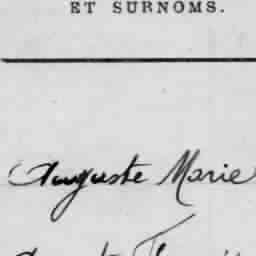 ET SURNOMS.
Auguste Marie